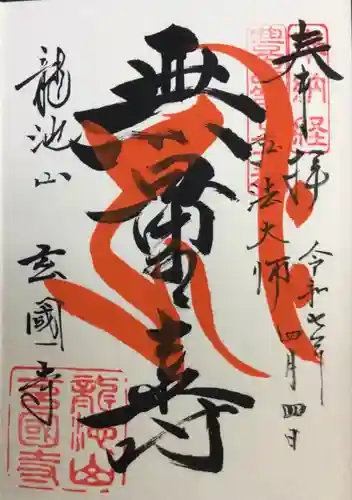 奉拝
令和七年
四月四日
弘法大師
無量寿
龍池山
玄國寺
奉納経
龍池山
玄國寺